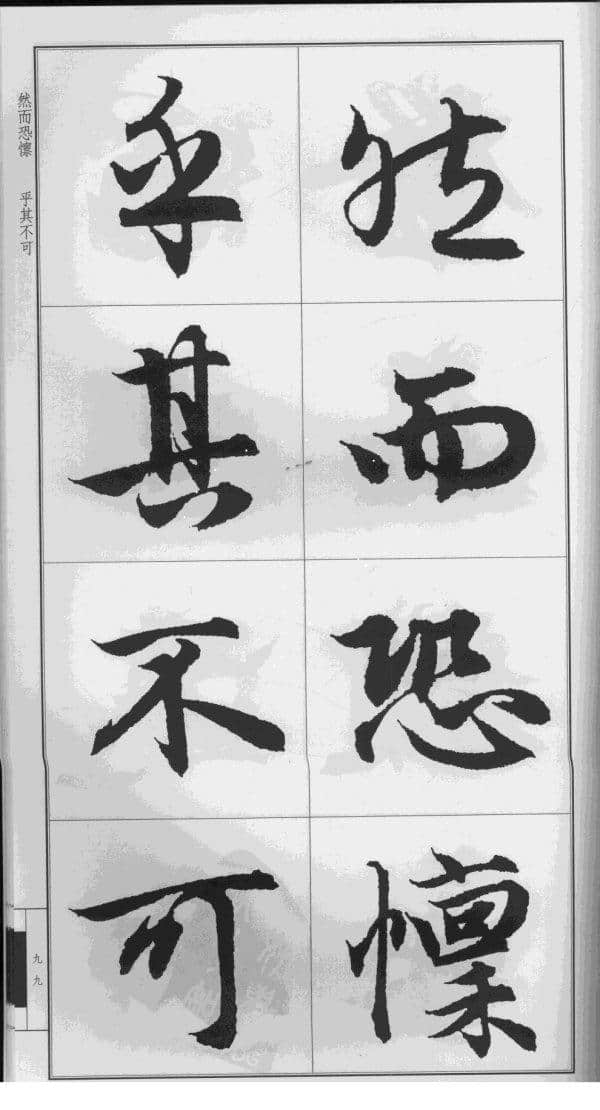 然而恐懔
乎其不可
然而恐懔 乎其不可
九九